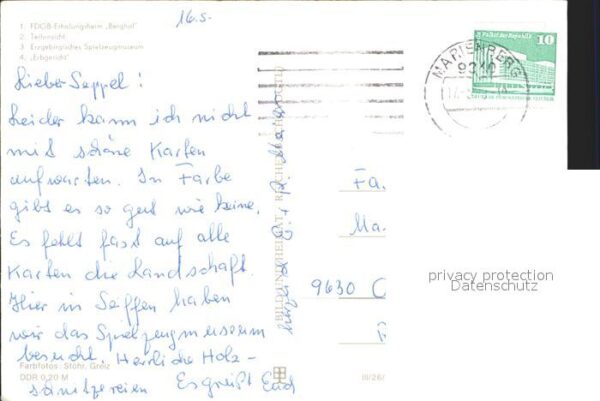 16.5.
1. FDGB-Erholungsheim „Berghof"
2. Teilansicht
3. Erzgebirgisches Spielzeugmuseum
4. „Erbgericht"
Lieber Seppel!
Leider kann ich nicht
mit schöne Karten
aufwarten. In Farbe
gibt es so gut wie keine.
Es fehlt fast auf alle
Karten die Landschaft.
Hier in Seiffen haben
wir das Spielzeugmuseum
besucht. Herrliche Holz-
schnitzereien Es grüßt Euch
BILD UND HEIMAT
Farbfotos: Stöhr, Greiz
DDR 0,20 M
III/26/
Palast der Republik
10
MARIENBERG
9340
Fa.
Ma.
9630 C
privacy protection
Datenschutz